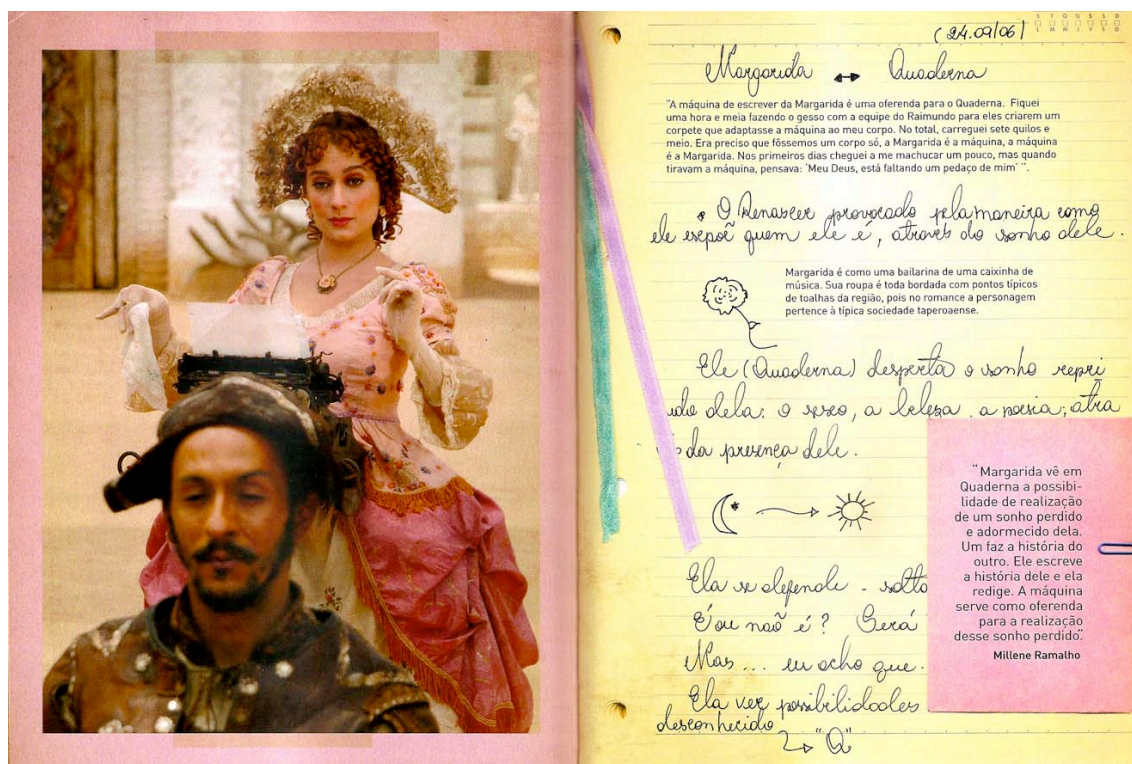 S T Q Q S S D
L M M J V S D
(24.09/06)
Margarida ↔ Quaderna
"A máquina de escrever da Margarida é uma oferenda para o Quaderna. Fiquei
uma hora e meia fazendo o gesso com a equipe do Raimundo para eles criarem um
corpete que adaptasse a máquina ao meu corpo. No total, carreguei sete quilos e
meio. Era preciso que fôssemos um corpo só, a Margarida é a máquina, a máquina
é a Margarida. Nos primeiros dias cheguei a me machucar um pouco, mas quando
tiravam a máquina, pensava: 'Meu Deus, está faltando um pedaço de mim' ".
* O Renascer provocado pela maneira como
ele expoê quem ele é, através do sonho dele.
Margarida é como uma bailarina de uma caixinha de
música. Sua roupa é toda bordada com pontos típicos
de toalhas da região, pois no romance a personagem
pertence à típica sociedade taperoaense.
Ele (Quaderna) desperta o sonho repri
dela: o sexo, a beleza, a poesia; atra
da presença dele.
Ela se defende - solto
É ou naõ é? Será
Mas... eu acho que.
Ela ver possibilidades
desconhecido
↳ "Q"
"Margarida vê em
Quaderna a possibi-
lidade de realização
de um sonho perdido
e adormecido dela.
Um faz a história do
outro. Ele escreve
a história dele e ela
redige. A máquina
serve como oferenda
para a realização
desse sonho perdido."
Millene Ramalho